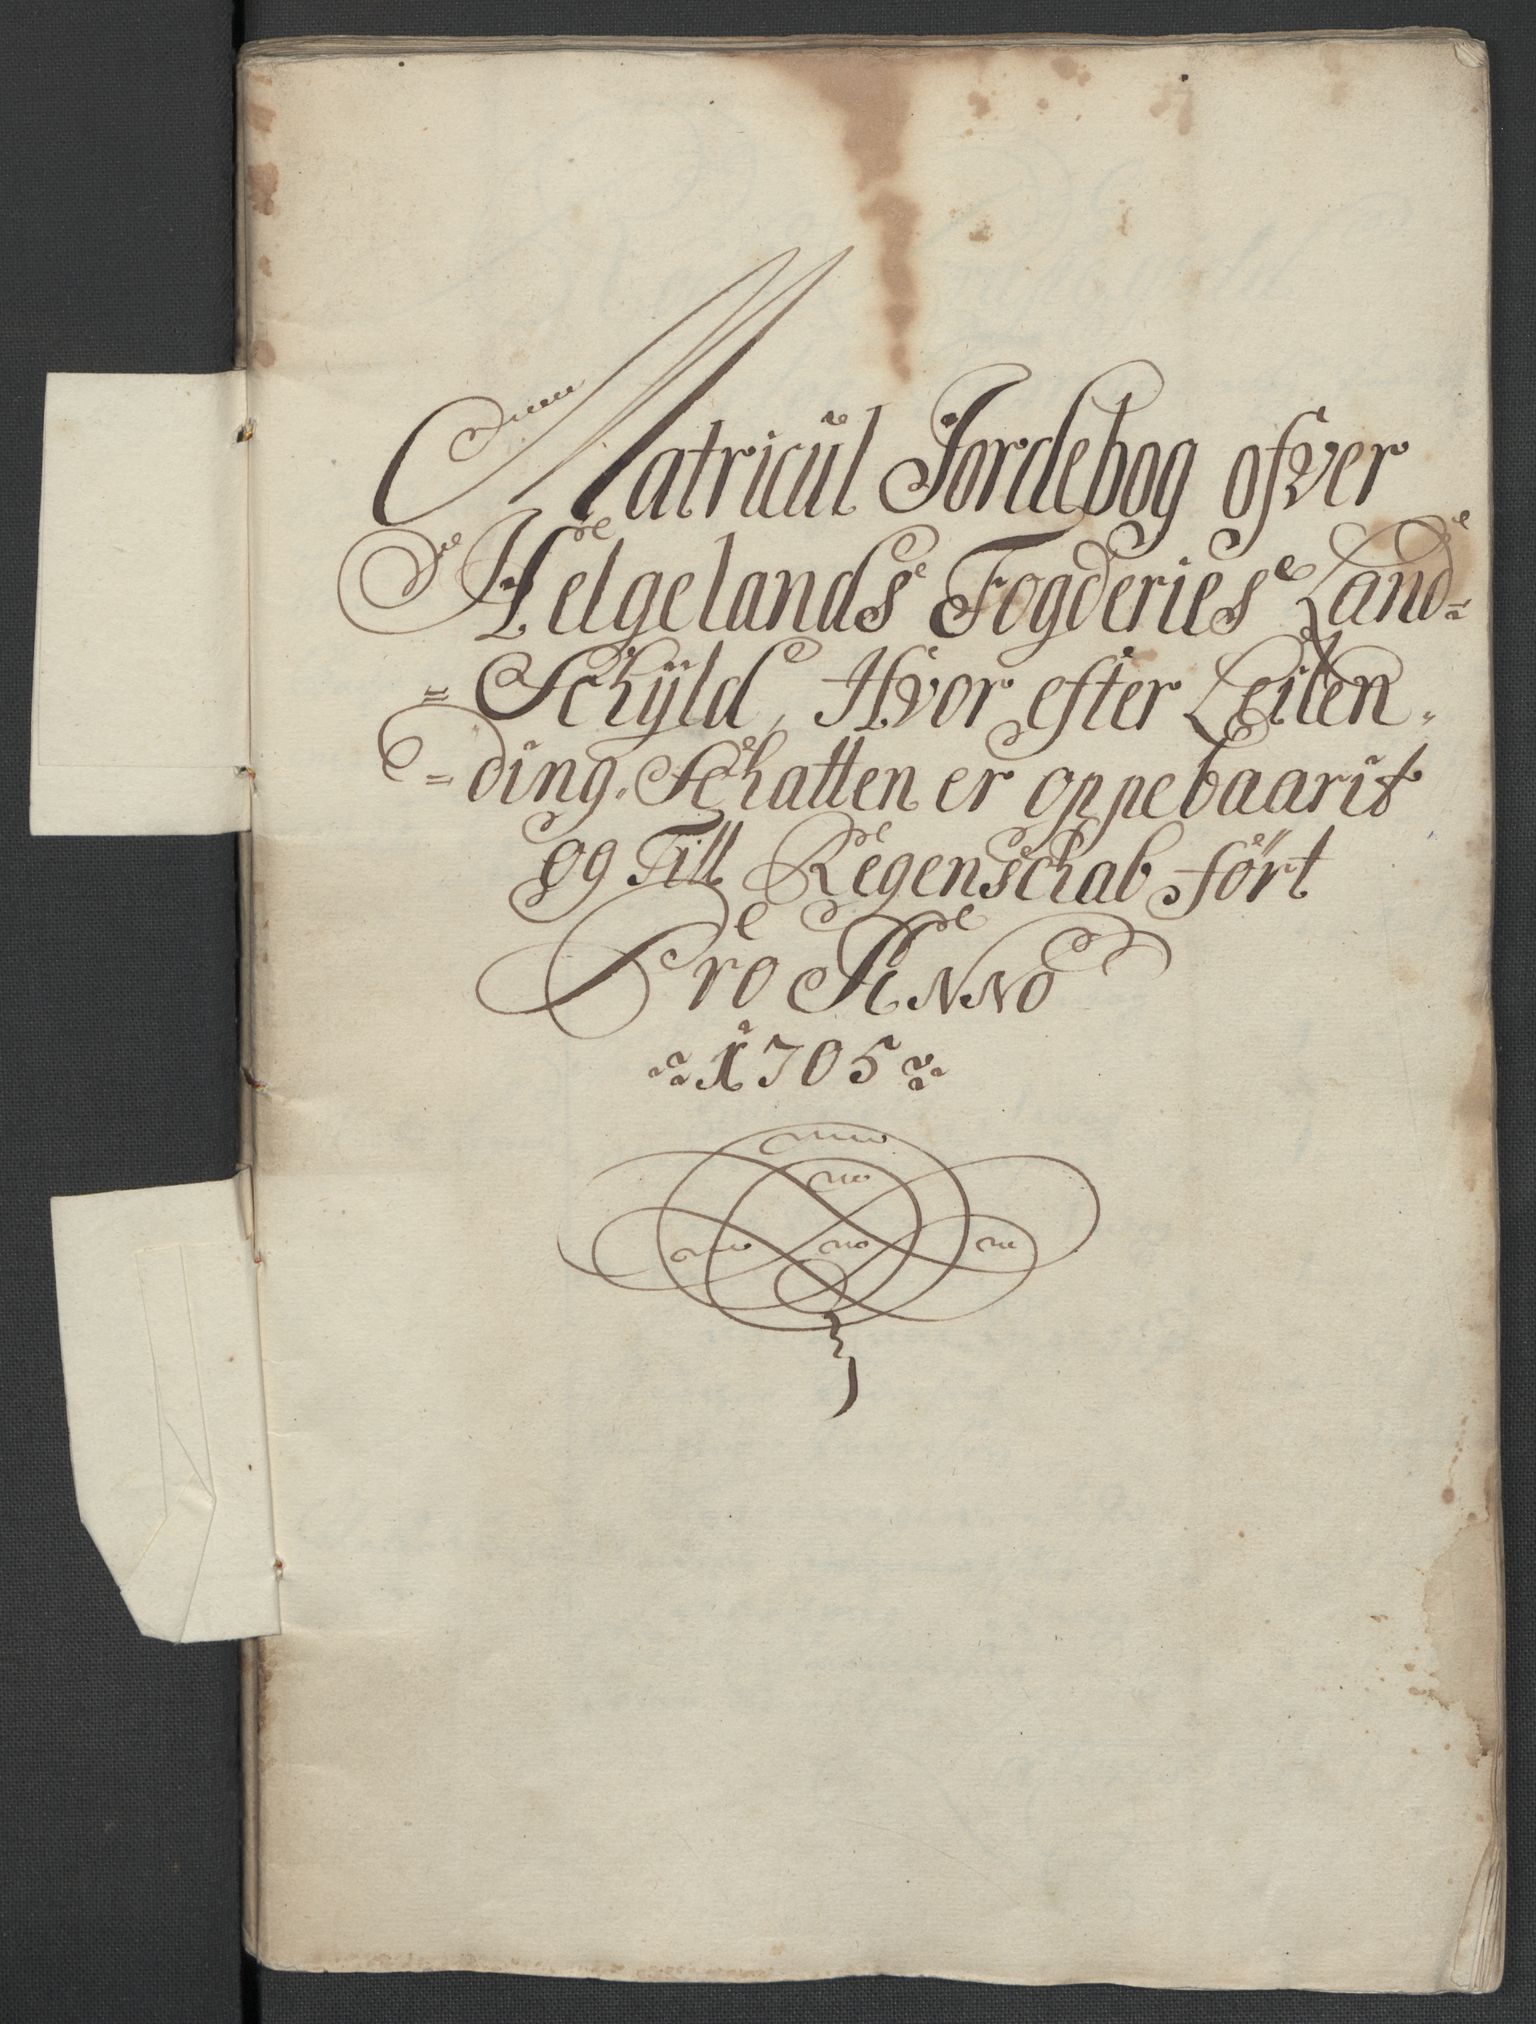 Matricül Jordebog ofver
Helgelands Fogderies Land=
=Schÿld, Hvor efter Leilen=
=ding. Schatten er oppebaarit
og Till Regenschab ført
Pro Anno
1705